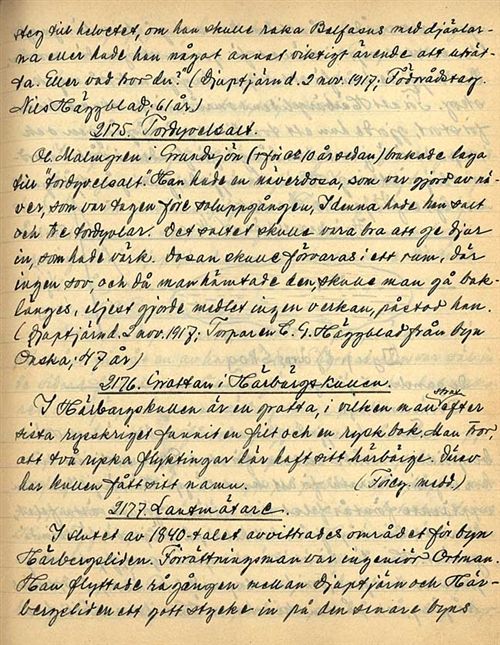 steg till helvetet, om han skulle raka Belfasus med djävlar-
na eller hade han något annat viktigt ärende att uträt-
ta. Eller vad tror du? (Djuptjärn d. 2 nov. 1917;
Nils Häggblad; 61 år.)
2175. Tordyvelsalt.
Ol. Malmgren i Grundsjön (+för 10 år sedan) brukade laga
till "tordyvelsalt." Han hade en näverdosa, som var gjord av nä-
ver, som var tagen före soluppgången, I denna hade han salt
och tre tordyvlar. Det saltet skulle vara bra att ge djur
in, som hade värk. Dosan skulle förvaras i ett rum, där
ingen sov, och då man hämtade den, skulle man gå bak-
länges, eljest gjorde medlet ingen verkan, påstod han.
(Djuptjärn d. 2 nov. 1917; Torparen E. G. Häggblad från byn
Onska; 47 år)
2176. Grottan i Härbärgskullen.
I Härbergskullen är en grotta, i vilken man strax efter
sista rysskriget funnit en filt och en rysk bok. Man tror
att två ryska flyktingar här haft sitt härbärge. Därav
har kullen fått sitt namn. (Föreg. medd)
2177. Lantmätare.
I slutet av 1840-talet avvittrades området för byn
Härbergsliden. Förrättningsman var ingeniör Ortman.
Han flyttade rågången mellan Djuptjärn och Här-
bergsliden ett gott stycke in på den senare byns